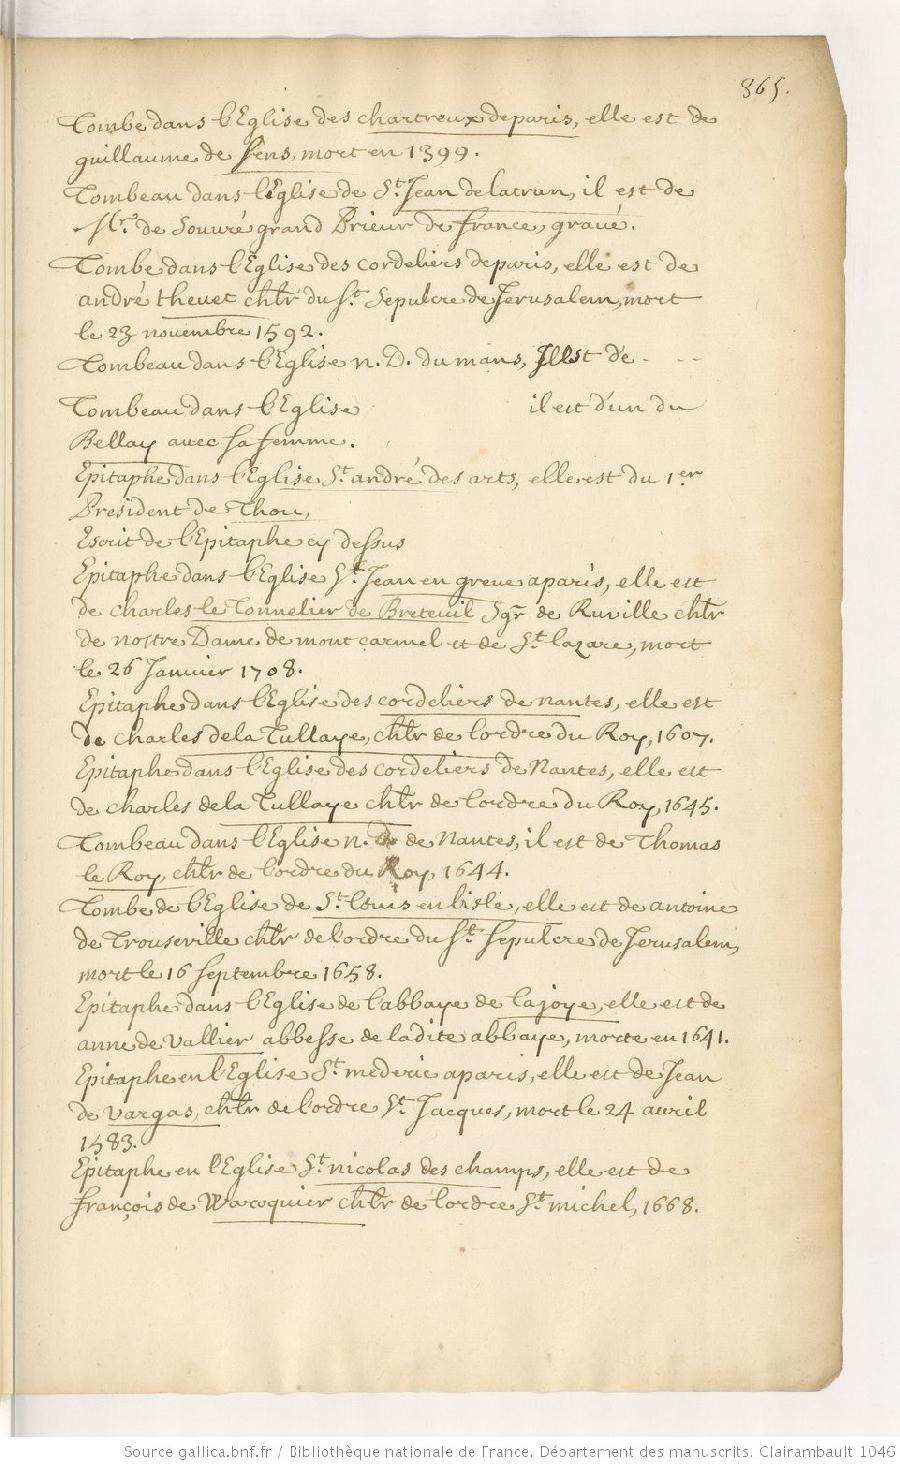 865.
Tombe dans l'Eglise des chartreux de paris, elle est de
guillaume de Sens, mort en 1399.
Tombeau dans l'Eglise de St. Jean de latran, il est de
Mr. de Souvré grand Prieur de france, gravé.
Tombe dans l'Eglise des cordeliers de paris, elle est de
andré thevet chlr du St. Sepulcre de Jerusalem, mort
le 23 novembre 1592.
Tombeau dans l'Eglise n. D. du mans, Il est de - - -
Tombeau dans l'Eglise il est d'un du
Bellay avec sa femme.
Epitaphe dans l'Eglise St. andré des arts, elle est du 1er
President de Thou,
Escrit de l'Epitaphe cy dessus
Epitaphe dans l'Eglise St. Jean en greve a paris, elle est
de charles le Tonnelier de Breteuil Sgr de Ruville chlr
de nostre Dame de mont carmel et de St. lazare, mort
le 26 Janvier 1708.
Epitaphe dans l'Eglise des cordeliers de nantes, elle est
de charles de la Tullaye, chlr de l'ordre du Roy, 1607.
Epitaphe dans l'Eglise des cordeliers de Nantes, elle est
de charles de la Tullaye chlr de l'ordre du Roy, 1645.
Tombeau dans l'Eglise n. D. de Nantes, il est de Thomas
le Roy, chlr de l'ordre du Roy, 1644.
Tombe de l'Eglise de St. Louis en lisle, elle est de antoine
de Trouseville chlr de l'ordre du St. Sepulcre de Jerusalem,
mort le 16 Septembre 1658.
Epitaphe dans l'Eglise de l'abbaye de la joye, elle est de
anne de Vallier abbesse de ladite abbaye, morte en 1641.
Epitaphe en l'Eglise St. mederic a paris, elle est de Jean
de Vargas, chlr de l'ordre St. Jacques, mort le 24 avril
1583.
Epitaphe en l'Eglise St. nicolas des champs, elle est de
françois de Wacoquier chlr de l'ordre St. michel, 1668.
Source gallica.bnf.fr / Bibliothèque nationale de France. Département des manuscrits. Clairambault 1046